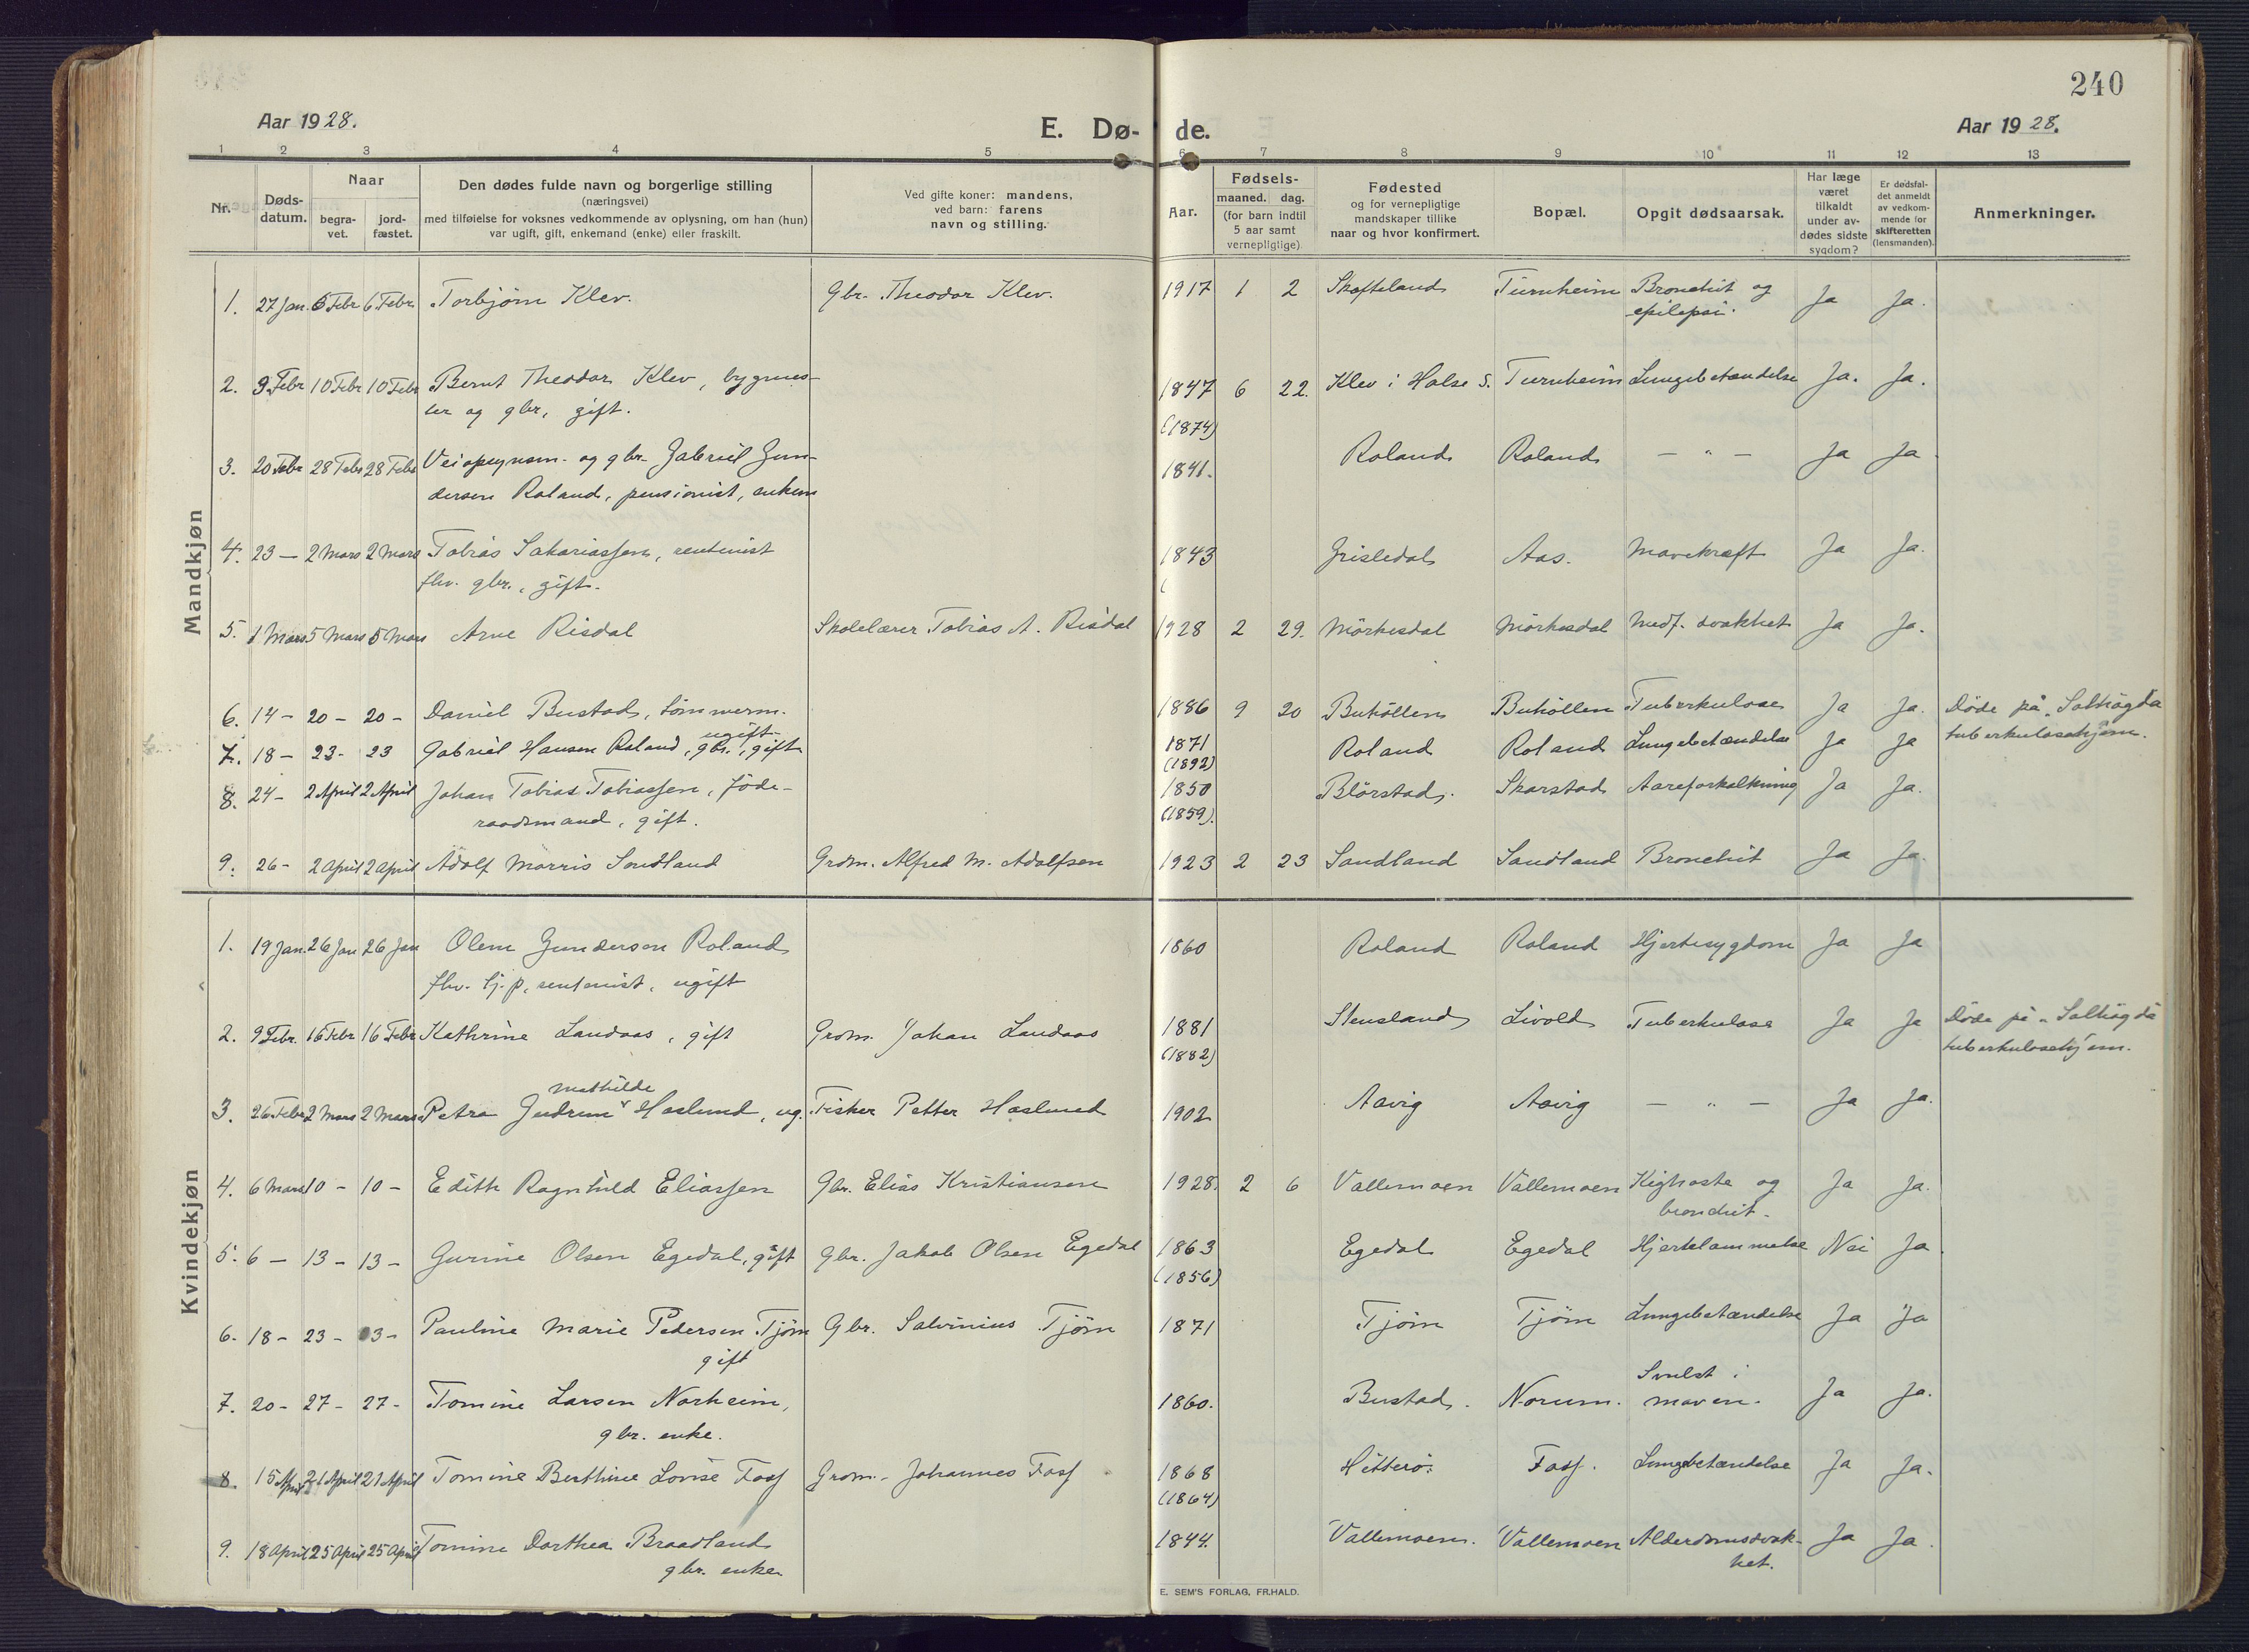 240
Aar 1928.
E. Dø- de.
Aar 1928.
1 2 3 4 5 6 7 8 9 10 11 12 13
Nr.
Døds-
datum.
Naar
begra-
vet.
jord-
fæstet.
Den dødes fulde navn og borgerlige stilling
(næringsvei)
med tilføielse for voksnes vedkommende av oplysning, om han (hun)
var ugift, gift, enkemand (enke) eller fraskilt.
Ved gifte koner: mandens,
ved barn: farens
navn og stilling.
Aar.
Fødsels-
maaned. dag.
(for barn indtil
5 aar samt
vernepligtige).
Fødested
og for vernepligtige
mandskaper tillike
naar og hvor konfirmert.
Bopæl.
Opgit dødsaarsak.
Har læge
været
tilkaldt
under av-
dødes sidste
sygdom?
Er dødsfal-
det anmeldt
av vedkom-
mende for
skifteretten
(lensmanden).
Anmerkninger.
Mandkjøn
1. 27 Jan. 6 Febr 6 Febr. Torbjørn Klev. Gbr. Theodor Klev. 1917 1 2 Skofteland Turnheim Bronchit og Ja Ja.
epilepsi.
2. 3 Febr 10 Febr 10 Febr Bernt Theodor Klev, bygmes- 1847 6 22. Klev i Halse s. Turnheim Lungebetændelse Ja. Ja.
ter og gbr, gift. (1874)
3. 20 Febr 28 Febr 28 Febr Veiopsynsm. og gbr. Gabriel Gun- 1841. Roland Roland — " — Ja Ja.
dersen Roland, pensionist, enkem
4. 23 — 2 Mars 2 Mars Tobias Sakariassen, rentenist 1843 Grisledal Aas. Mavekræft Ja Ja.
fhv. gbr., gift. (
5. 1 Mars 5 Mars 5 Mars Arne Risdal Skolelærer Tobias A. Risdal 1928 2 29. Mørkesdal Mørkesdal Medf. svakhet Ja Ja.
6. 14 — 20 — 20 — Daniel Bustad, tømmerm. 1886 9 20 Buhøllen Buhøllen Tuberkulose Ja Ja. Døde på „Solhøgda
ugift tuberkulosehjem.
7. 18 — 23 - 23 Gabriel Hansen Roland, gbr., gift 1871 Roland Roland Lungebetændelse Ja Ja
(1892)
8. 24 - 2 April 2 April Johan Tobias Tobiassen, føde- 1850 Blørstad. Skarstad Aareforkalkning Ja Ja.
raadsmand, gift. (1859).
9. 26 - 2 April 2 April Adolf Morris Sandland Grdm. Alfred M. Adolfsen 1923 2 23 Sandland Sandland Bronchit Ja Ja.
Kvindekjøn
1. 19 Jan. 26 Jan 26 Jan Olene Gundersen Roland 1860 Roland Roland Hjertesygdom Ja Ja
fhv. tj.p, rentenist, ugift
2. 9 Febr. 16 Febr 16 Febr Kathrine Landaas, gift Grdm. Johan Landaas 1881 Stensland Livold Tuberkulose Ja Ja Døde på „Solhøgda
(1882) tuberkulosehjem.
Mathilde
3. 26 Febr 2 Mars 2 Mars Petra Gudrun v Haslund, ug. Fisker Petter Haslund 1902 Aavig Aavig — " — Ja Ja.
4. 6 Mars 10 - 10 - Edith Ragnhild Eliassen Gbr. Elias Kristiansen 1928. 2 6 Vallemoen Vallemoen Kighoste og Ja Ja.
bronchit.
5. 6 — 13 - 13 - Gurine Olsen Egedal, gift Gbr. Jakob Olsen Egedal 1863 Egedal Egedal Hjertelammelse Nei Ja.
(1856)
6. 18 - 23 - 23 - Pauline Marie Pedersen Tjøm Gbr. Salvinius Tjøm 1871 Tjøm Tjøm Lungebetændelse Ja Ja
gift
7. 20 - 27 - 27 - Tomine Larsen Norheim, 1860. Bustad. Norum. Svulst i Ja Ja.
gbr. enke. maven.
8. 15 April 21 April 21 April Tomine Berthine Lovise Foss Grdm. Johannes Foss 1868 Hitterø. Foss. Lungebetændelse Ja Ja.
(1864)
9. 18 April 25 April 25 April Tomine Dorthea Braadland 1844. Vallemoen. Vallemoen Alderdomssvak- Ja Ja.
gbr. enke het.
E. SEM'S FORLAG, FR.HALD.